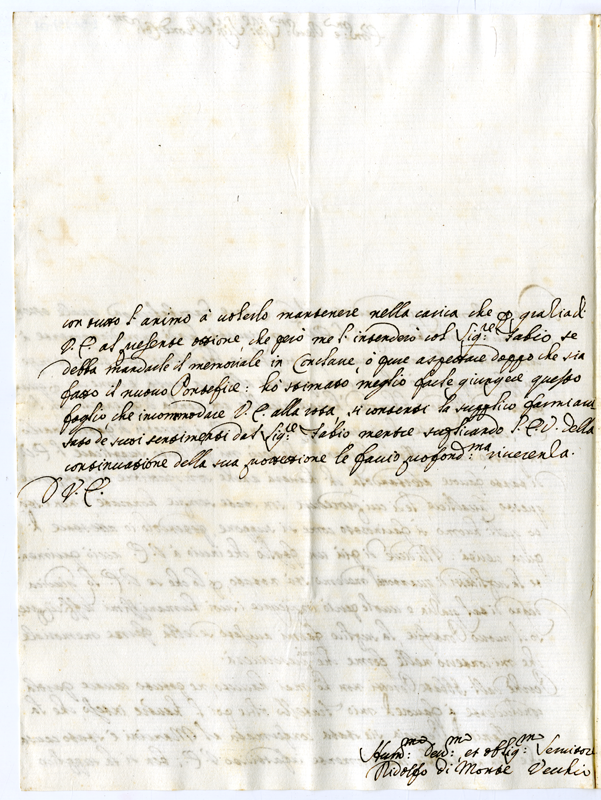 con tutto l'animo à volerlo mantenere nella carica che p gratia di
V.E. al presente ottiene che però me l'intenderò col Sig:re Fabio se
debba mandarle il memoriale in Conclave, ò pure aspettare doppo che sia
fatto il nuovo Pontefice: hò stimato meglio farle giungere questo
foglio, che incommodare V.E. alla rota, si contenti la supplico farmi avi
sato de suoi sentimenti dal Sig:re Fabio mentre supplicando l'E.V. della
continuatione della sua protettione le faccio profond:ma riverenza.
D V.E.
Hum:mo Dev:mo et oblig:mo Servitore
Ridolfo di Monte Vecchio